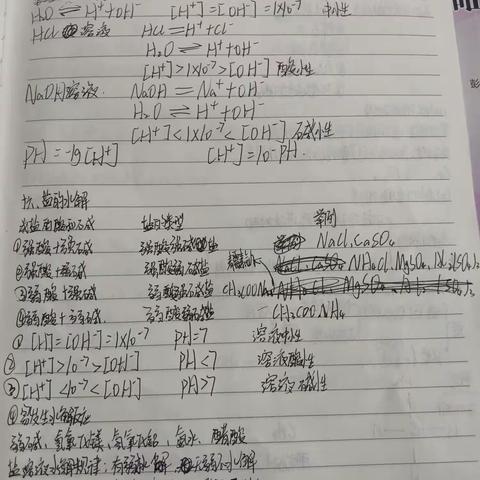 H₂O ⇌ H⁺+OH⁻ [H⁺]=[OH⁻]=1×10⁻⁷ 中性
HCl 溶液 HCl=H⁺+Cl⁻
H₂O ⇌ H⁺+OH⁻
[H⁺]>1×10⁻⁷>[OH⁻] 酸性
NaOH溶液. NaOH=Na⁺+OH⁻
H₂O ⇌ H⁺+OH⁻
[H⁺]<1×10⁻⁷<[OH⁻] 碱性
PH=-lg[H⁺] [H⁺]=10⁻ᴾᴴ.
盐的水解
盐的类型 举例
①强酸+强碱 强酸强碱盐 NaCl、CaSO₄
②强酸+弱碱 强酸弱碱盐 NH₄Cl、MgSO₄、Al₂(SO₄)₃
③弱酸+强碱 弱酸强碱盐 CH₃COONa
④弱酸+弱碱. 弱酸弱碱盐 CH₃COONH₄
① [H]=[OH⁻]=1×10⁻⁷ PH=7 溶液中性
② [H⁺]>10⁻⁷>[OH⁻] PH<7 溶液酸性
③ [H⁺]<10⁻⁷<[OH⁻] PH>7 溶液碱性
④易发生水解反应
弱碱、氢氧化镁、氢氧化铝、氨水、醋酸
盐溶液水解规律：有弱就水解 无弱不水解